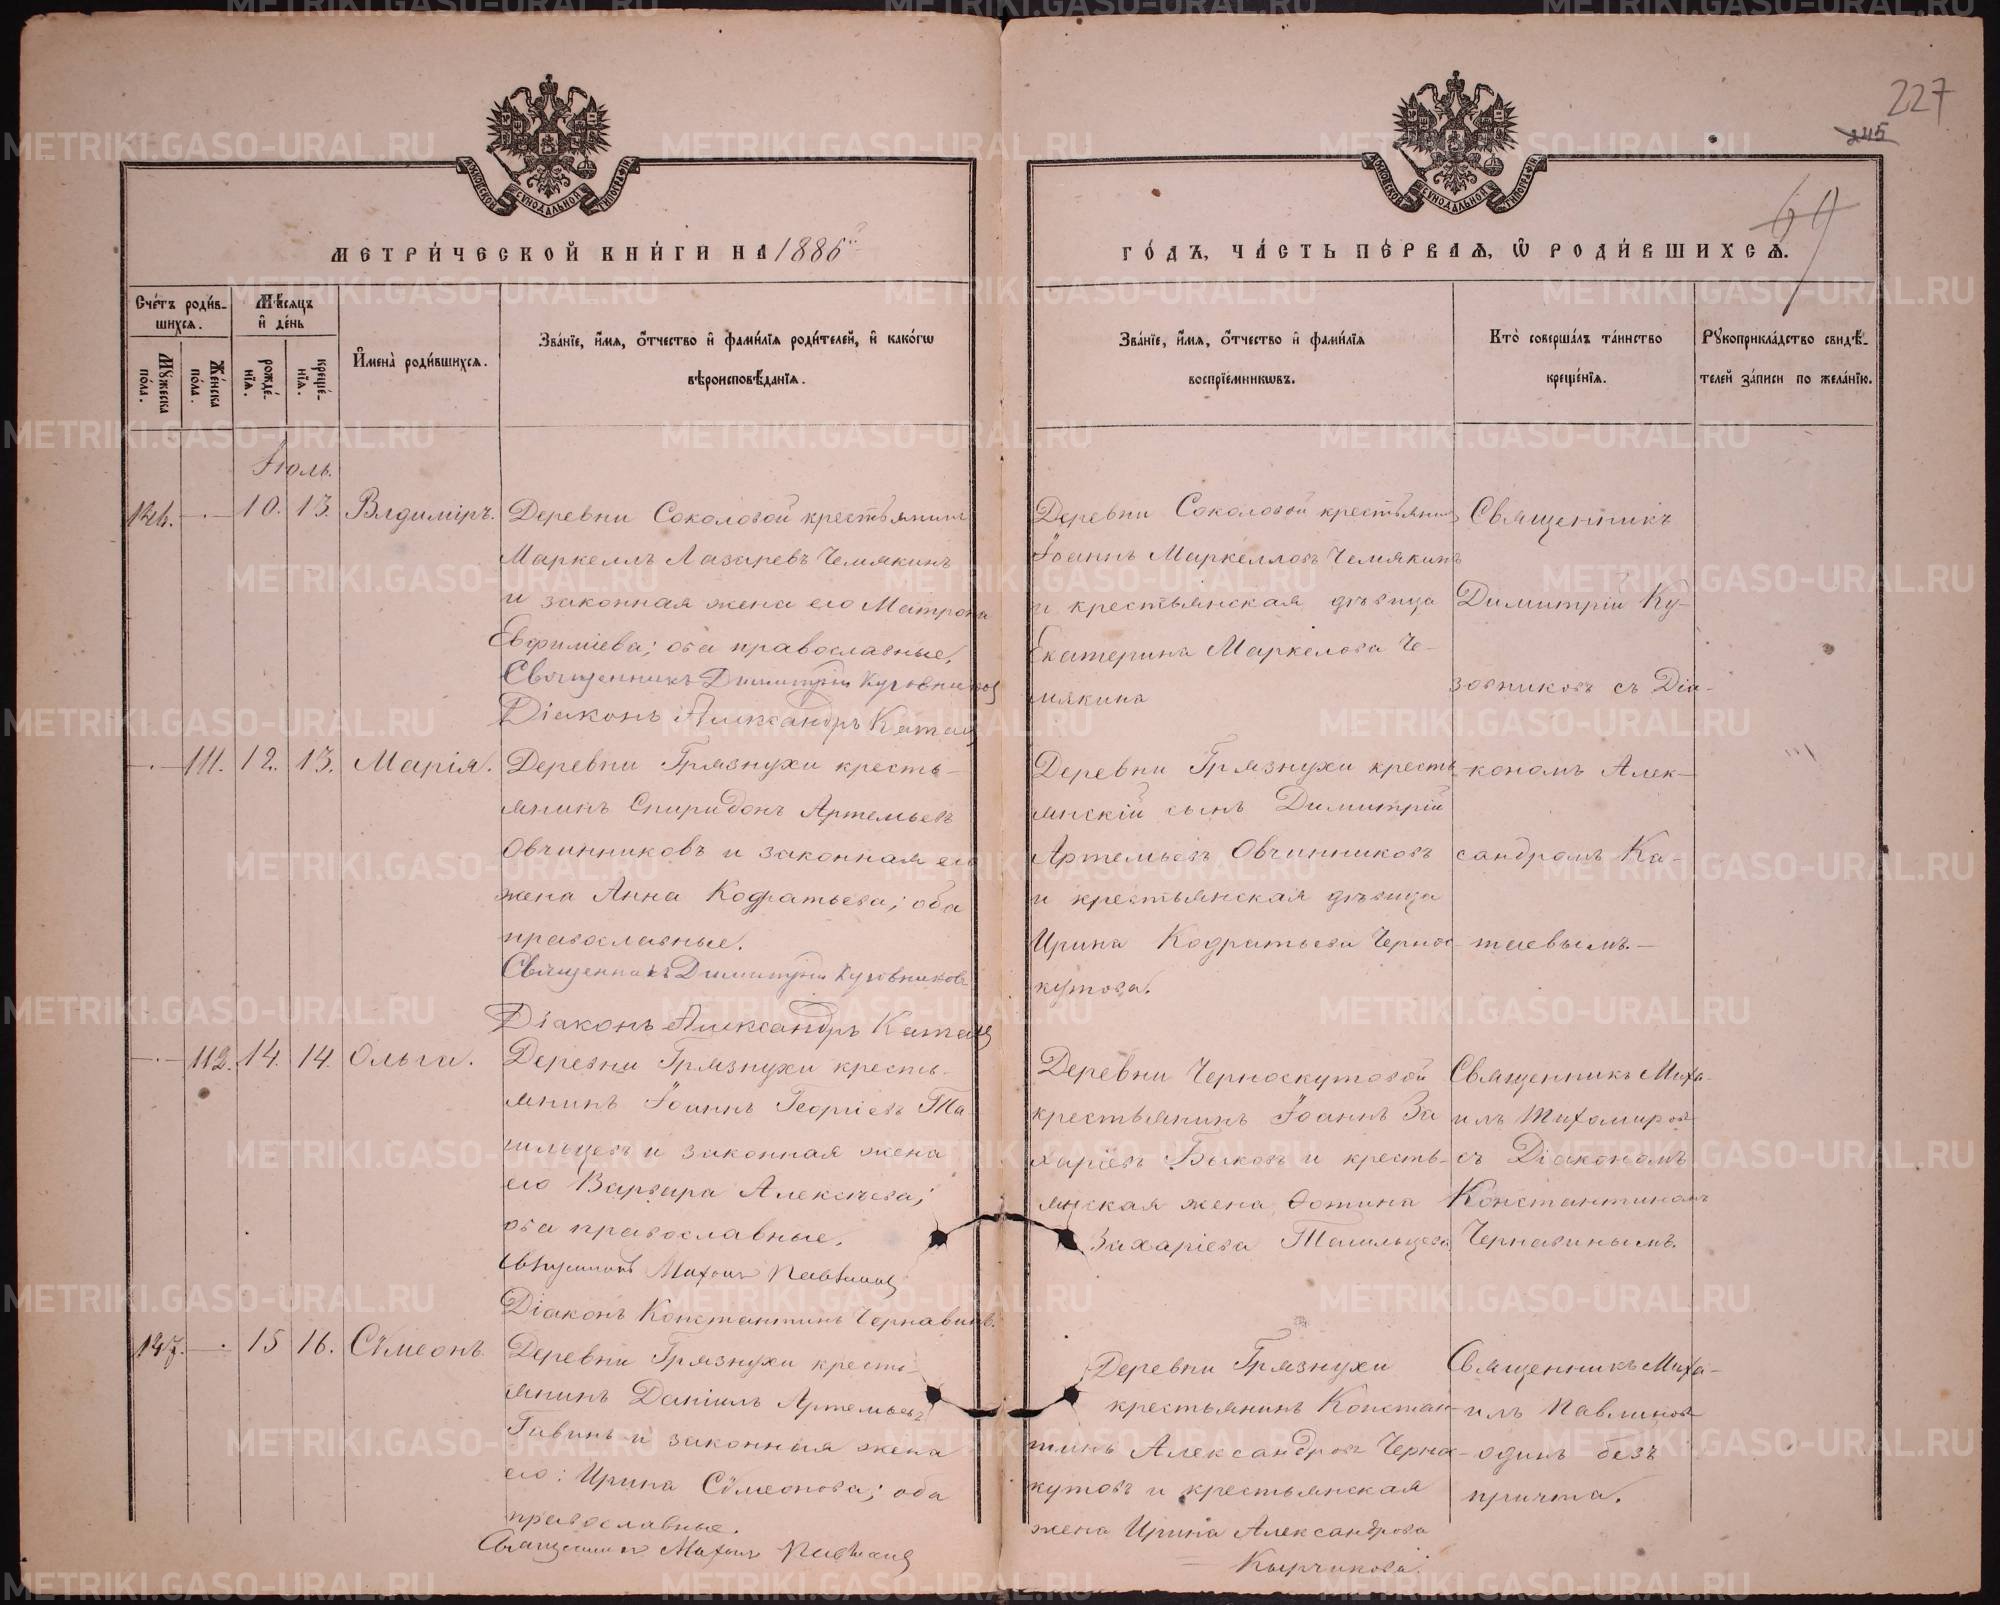 227
245
69
МЕТРИ́ЧЕСКОЙ КНИ́ГИ НА 1886й
ГО́ДЪ, ЧА́СТЬ ПЕ́РВАѦ, Ѽ РОДИ́ВШИХСѦ.
Сче́тъ роди́в-
шихсѧ.
Мѣсяцъ
и҆ де́нь
Мꙋ́жеска
по́ла.
Же́нска
по́ла.
рожде́-
нїѧ.
креще́-
нїѧ.
И҆мена̀ роди́вшихсѧ.
Зва́нїе, и҆́мѧ, ѻ҆́тчество и҆ фами́лїѧ роди́телей, и҆ како́гѡ
вѣроисповѣ́данїѧ.
Зва́нїе, и҆́мѧ, ѻ҆́тчество и҆ фами́лїѧ
воспрїе́мникѡвъ.
Кто̀ соверша́лъ та́инство
креще́нїѧ.
Рꙋкоприкла́дство свидѣ́-
телей за́писи по жела́нїю.
Іюль.
126. — 10. 13. Влдиміръ.
Деревни Соколовой крестьянинъ
Маркеллъ Лазаревъ Чемякинъ
и законная жена его Матрона
Евфиміева; оба православные.
Священникъ Димитрій Кузовников
Діаконъ Александръ Катаев
Деревни Соколовой крестьянинъ
Іоаннъ Маркелловъ Чемякинъ
и крестьянская дѣвица
Екатерина Маркелова Че-
мякина
Священникъ
Димитрій Ку-
зовниковъ съ Діа-
— 111. 12. 13. Марія.
Деревни Грязнухи кресть-
янинъ Спиридонъ Артемьевъ
Овчинниковъ и законная его
жена Анна Кодратьева; оба
православные.
Священникъ Димитрій Кузовников
Діаконъ Александръ Катаев
Деревни Грязнухи кресть-
янскій сынъ Димитрій
Артемьевъ Овчинниковъ
и крестьянская дѣвица
Ирина Кодратьева Чернос-
кутова.
кономъ Алек-
сандромъ Ка-
таевымъ.—
— 112. 14. 14. Ольга.
Деревни Грязнухи кресть-
янинъ Іоаннъ Георгіевъ Та-
шильцевъ и законная жена
его Варвара Алексѣева;
оба православные.
Священникъ Михаил Павлинов
Діаконъ Константинъ Чернавинъ.
Деревни Черноскутовой
крестьянинъ Іоаннъ За
харіевъ Быковъ и кресть-
янская жена Фотина
Захаріева Ташильцева
Священникъ Миха-
илъ Тихомиров
съ Діакономъ
Константиномъ
Чернавинымъ.
127. — 15 16. Сѵмеонъ
Деревни Грязнухи кресть-
янинъ Даніилъ Артемьевъ
Гавинъ и законная жена
его: Ирина Сѵмеонова; оба
православные.
Священник Михаил Павлинов
Деревни Грязнухи
крестьянинъ Констан-
тинъ Александровъ Черно-
кутовъ и крестьянская
жена Ирина Александрова
Кырчикова.
Священникъ Миха-
илъ Павлинов
одинъ безъ
причта.